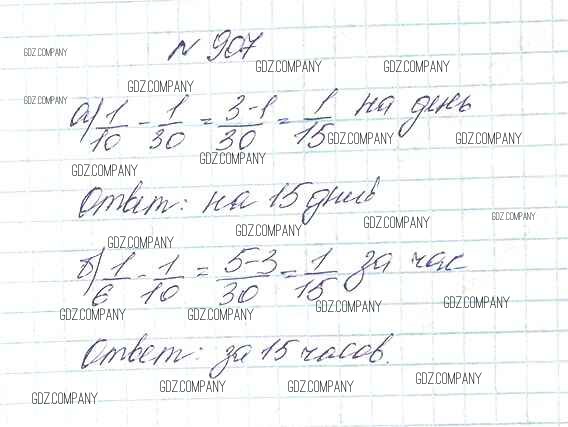 № 907
GDZ.COMPANY
GDZ.COMPANY GDZ.COMPANY
GDZ.COMPANY
GDZ.COMPANY
а) 1/10 - 1/30 = 3-1/30 = 1/15 на день
GDZ.COMPANY GDZ.COMPANY
GDZ.COMPANY
GDZ.COMPANY
Ответ: на 15 дней
GDZ.COMPANY
GDZ.COMPANY
GDZ.COMPANY
GDZ.COMPANY
б) 1/6 - 1/10 = 5-3/30 = 1/15 за час
GDZ.COMPANY
GDZ.COMPANY GDZ.COMPANY GDZ.COMPANY
Ответ: за 15 часов.
GDZ.COMPANY
GDZ.COMPANY GDZ.COMPANY GDZ.COMPANY